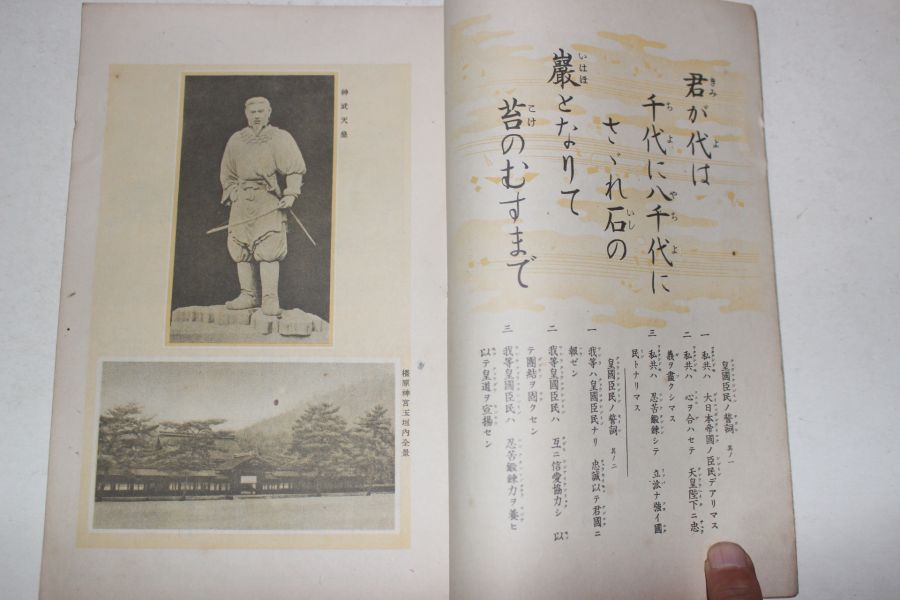 君が代は
千代に八千代に
さゞれ石の
巖となりて
苔のむすまで
皇國臣民ノ誓詞 其ノ一
一 私共ハ 大日本帝國ノ臣民デアリマス
二 私共ハ 心ヲ合ハセテ 天皇陛下ニ忠
義ヲ盡クシマス
三 私共ハ 忍苦鍛錬シテ 立派ナ強イ國
民トナリマス
皇國臣民ノ誓詞 其ノ二
一 我等ハ皇國臣民ナリ 忠誠以テ君國ニ
報ゼン
二 我等皇國臣民ハ 互ニ信愛協力シ 以
テ團結ヲ固クセン
三 我等皇國臣民ハ 忍苦鍛錬力ヲ養ヒ
以テ皇道ヲ宣揚セン
神武天皇
橿原神宮玉垣內全景